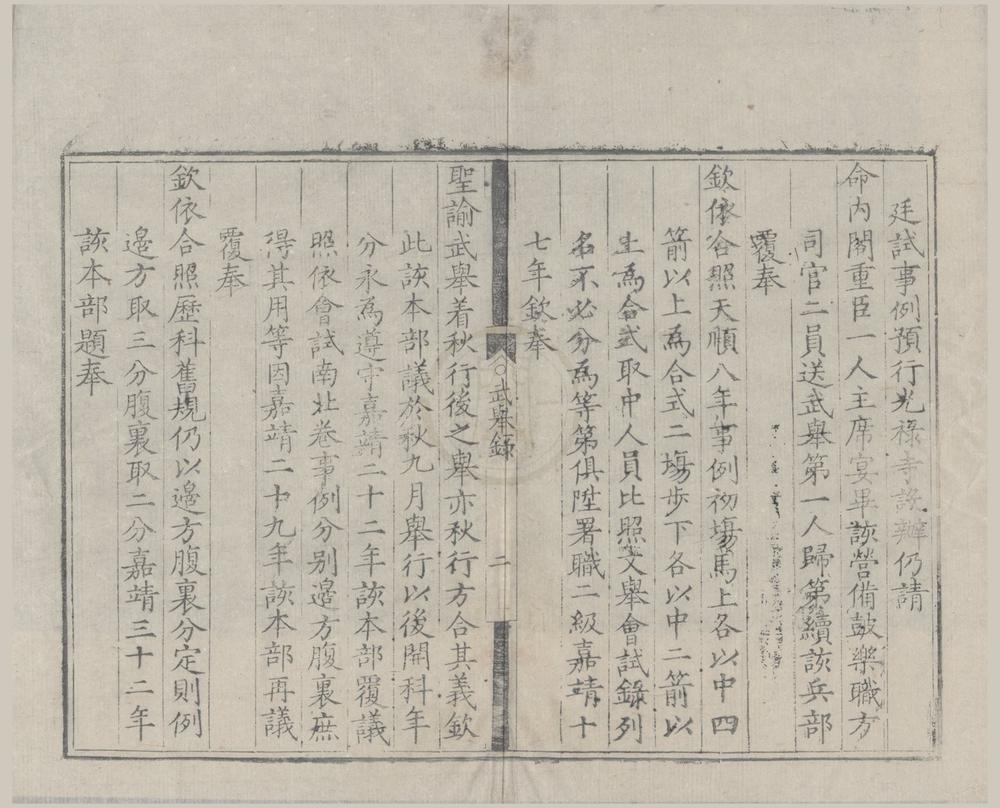 廷試事例預行光祿寺設辦仍請
命內閣重臣一人主席宴畢該營備鼓樂職方
司官二員送武舉第一人歸第續該兵部
覆奉
欽依合照天順八年事例初塲馬上各以中四
箭以上為合式二塲步下各以中二箭以
上為合式取中人員比照文舉會試錄列
名不必分為等第俱陞署職二級嘉靖十
七年欽奉
武舉錄
二
聖諭武舉着秋行後之舉亦秋行方合其義欽
此該本部議於秋九月舉行以後開科年
分永為遵守嘉靖二十二年該本部覆議
照依會試南北卷事例分别邊方腹裏庶
得其用等因嘉靖二十九年該本部再議
覆奉
欽依合照歷科舊規仍以邊方腹裏分定則例
邊方取三分腹裏取二分嘉靖三十二年
該本部題奉